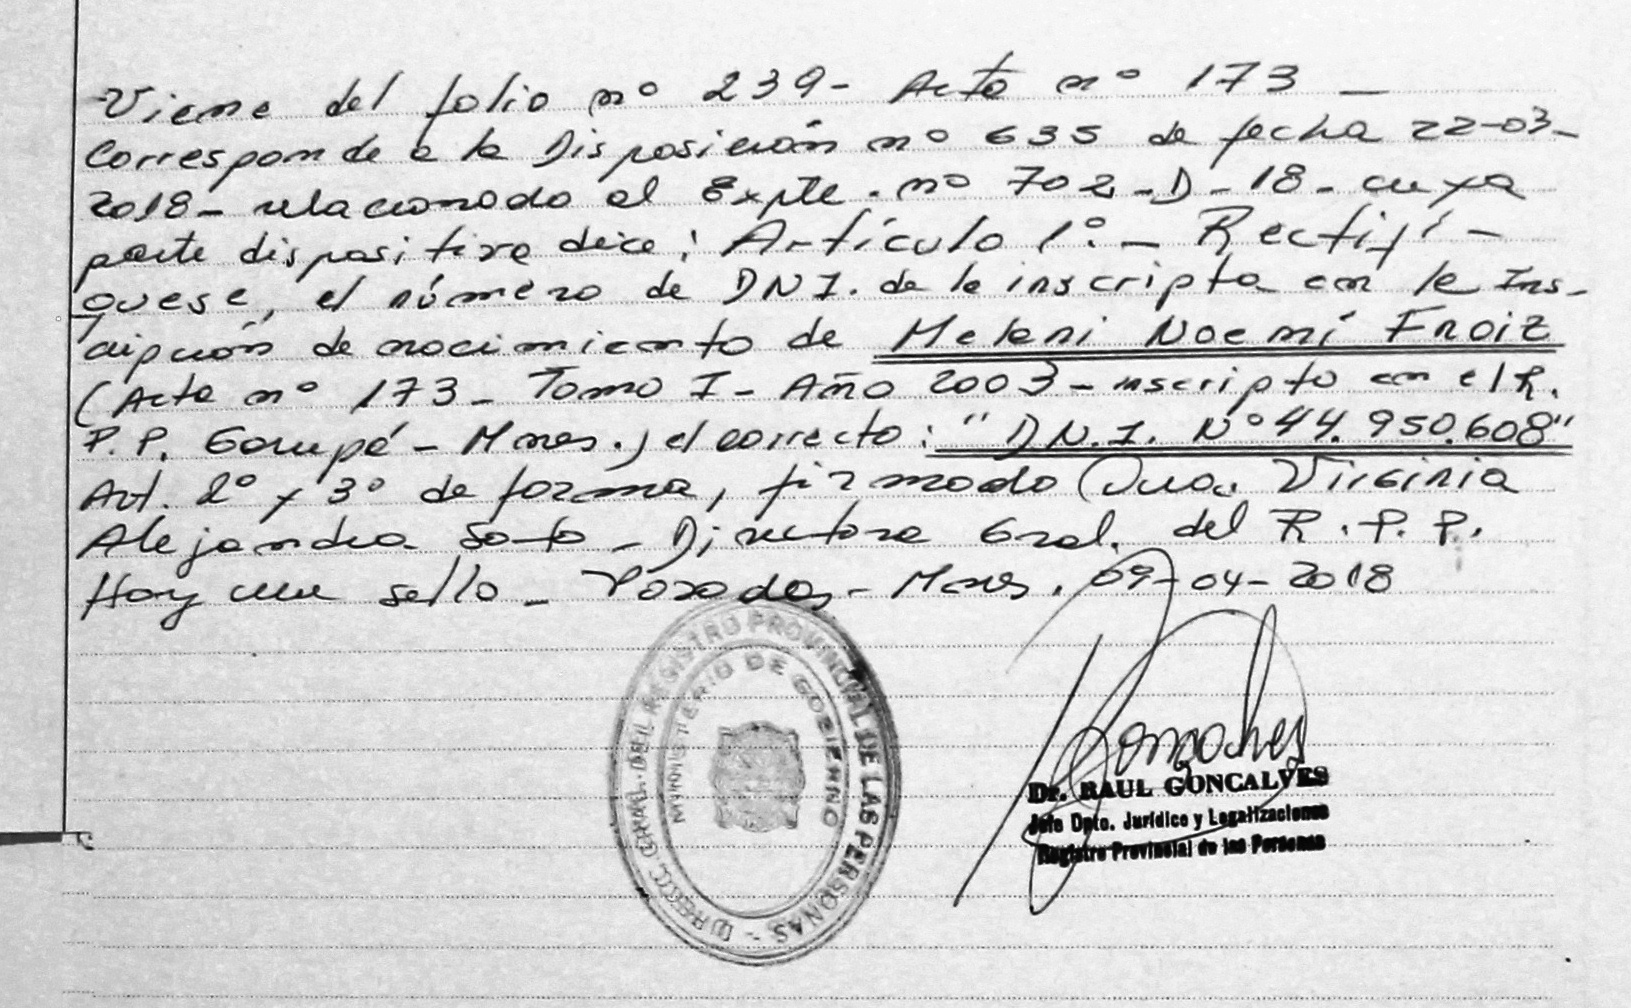 Viene del folio nº 239- Acta nº 173 —
Corresponde a la Disposición nº 635 de fecha 22-03-
2018- relacionado al Expte. nº 702-D-18- cuya
parte dispositiva dice: Artículo 1º.- Rectifí-
quese, el número de DNI. de la inscripta en la Ins-
cripción de nacimiento de Melani Noemí Froiz
(Acta nº 173- Tomo I- Año 2003- inscripto en el R.
P.P. Garupé- Mnes.) el correcto: "DN.I. Nº 44.950.608"
Art. 2º y 3º de forma, firmado Dra. Virginia
Alejandra Soto - Directora Gral. del R.P.P.
Hay un sello - Posadas - Mnes. 09-04-2018
DIRECC. GRAL. DEL REGISTRO PROVINCIAL DE LAS PERSONAS -
MINISTERIO DE GOBIERNO
Goncalves
Dr. RAUL GONCALVES
Jefe Dpto. Jurídico y Legalizaciones
Registro Provincial de las Personas